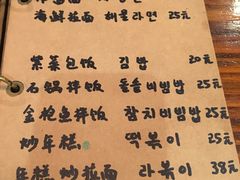 海鲜拉面 해물라면 25元
紫菜包饭 김밥 20元
石锅拌饭 돌솥비빔밥 25元
金枪鱼拌饭 참치비빔밥 25元
炒年糕 떡볶이 25元
年糕炒拉面 라볶이 38元